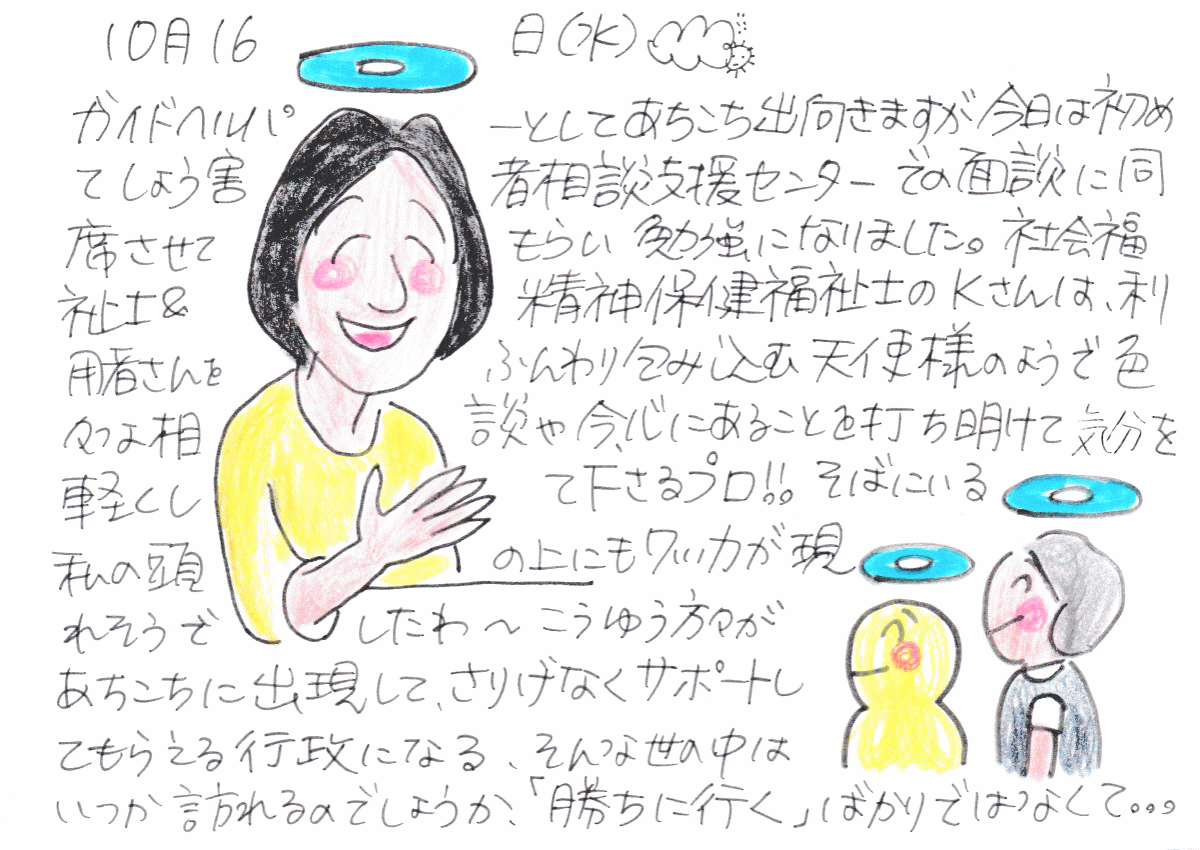 10月16日(水)
ガイドヘルパーとしてあちこち出向きますが今日は初め
てしょう害者相談支援センターでの面談に同
席させてもらい勉強になりました。社会福
祉士&精神保健福祉士のKさんは、利
用者さんをふんわり包み込む天使様のようで色
々な相談や今、心にあることを打ち明けて気分を
軽くして下さるプロ!!。そばにいる
私の頭の上にもワッカが現
れそうでしたわ〜こうゆう方々が
あちこちに出現して、さりげなくサポートし
てもらえる行政になる、そんな世の中は
いつか訪れるのでしょうか、「勝ちに行く」ばかりではなくて。。。